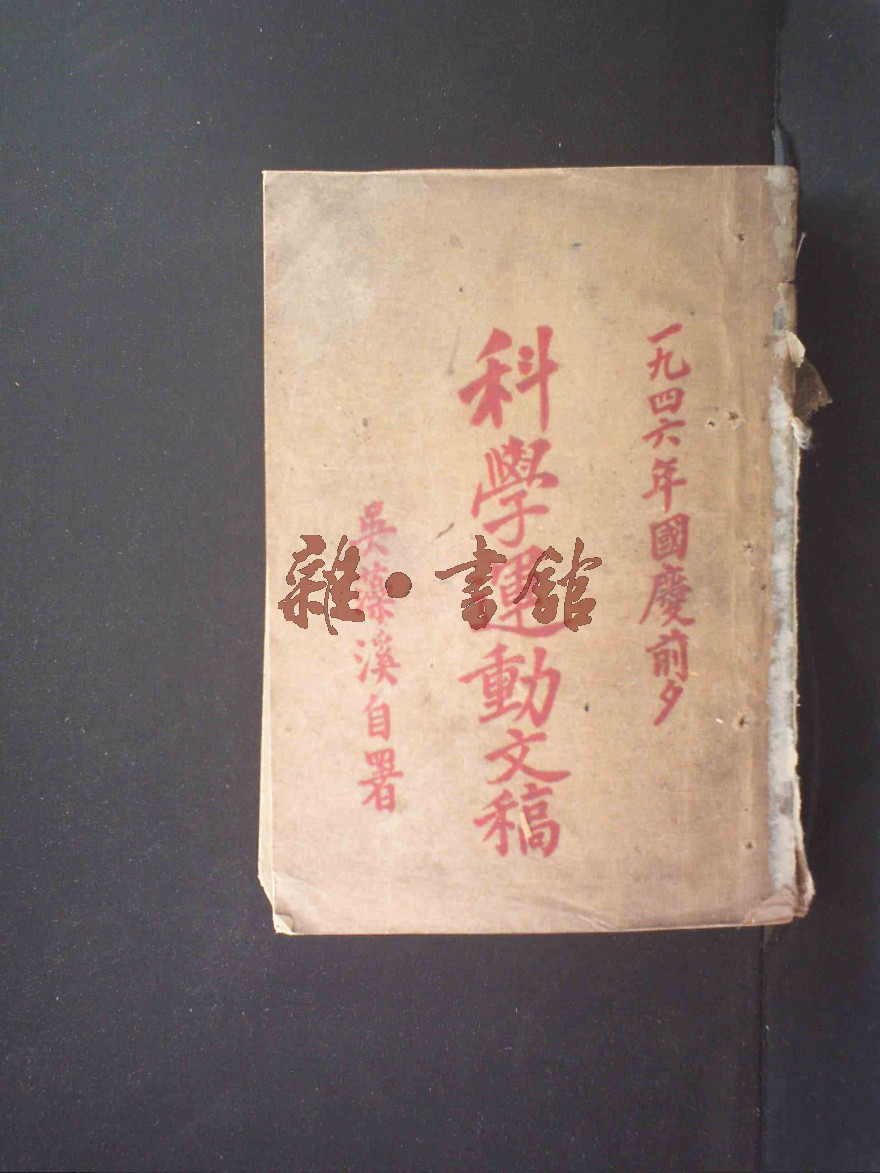 一九四六年國慶前夕
科學運動文稿
吳藻溪自署
雜·書館